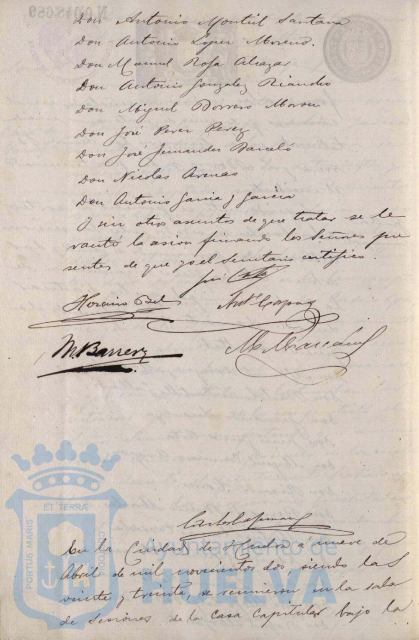 Don Antonio Montiel Santana
Don Antonio Lopez Moreno.
Don Manuel Rofa Alcazar
Don Antonio Gonzalez Riancho
Don Miguel Borrero Moron
Don José Perez Perez
Don José Fernandez Barceló
Don Nicolas Arenas
Don Antonio Garcia y Garcia
I sin otros asuntos de que tratar se le
vantó la sesion firmando los Señores pre
sentes de que yo el Secretario certifico.
Horacio Bel
M. Barrera
PORTUS MARIS
ET TERRAE
Ayuntamiento de
HUELVA
En la Ciudad de Huelva a nueve de
Abril de mil novecientos dos siendo las
veinte y treinta, se reunieron en la sala
de Sesiones de la Casa Capitular bajo la